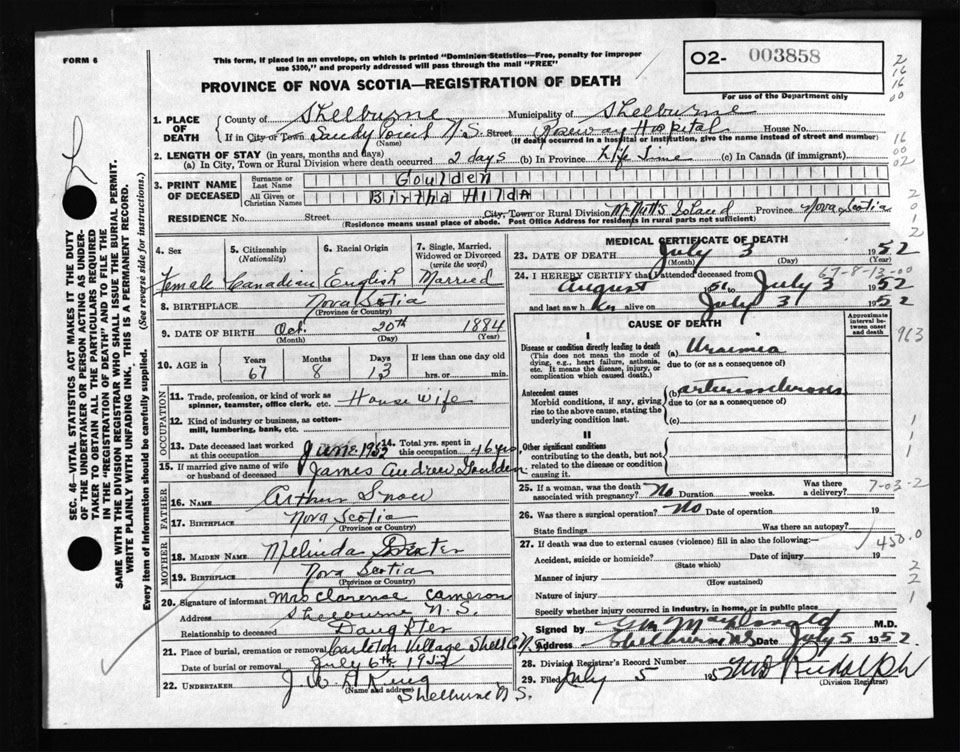 FORM 6
This form, if placed in an envelope, on which is printed "Dominion Statistics—Free, penalty for improper
use $300," and properly addressed will pass through the mail "FREE"
O2- 003858
For use of the Department only
PROVINCE OF NOVA SCOTIA—REGISTRATION OF DEATH
1. PLACE OF DEATH
County of Shelburne Municipality of Shelburne
If in City or Town Sandy Point N.S. Street Roseway Hospital House No.
(Name) (If death occurred in a hospital or institution, give the name instead of street and number)
2. LENGTH OF STAY (in years, months and days)
(a) In City, Town or Rural Division where death occurred 2 days (b) In Province Life Time (c) In Canada (if immigrant)
3. PRINT NAME OF DECEASED
Surname or Last Name Goulden
All Given or Christian Names Birtha Hilda
RESIDENCE No. Street City, Town or Rural Division McNutt's Island Province Nova Scotia
(Residence means usual place of abode. Post Office Address for residents in rural parts not sufficient)
4. Sex Female
5. Citizenship (Nationality) Canadian
6. Racial Origin English
7. Single, Married, Widowed or Divorced (write the word) Married
8. BIRTHPLACE Nova Scotia
(Province or Country)
9. DATE OF BIRTH Oct. 20th 1884
(Month) (Day) (Year)
10. AGE in Years 67 Months 8 Days 13 If less than one day old hrs. or min.
OCCUPATION
11. Trade, profession, or kind of work as spinner, teamster, office clerk, etc. House wife
12. Kind of industry or business, as cotton-mill, lumbering, bank, etc.
13. Date deceased last worked at this occupation June 1952
14. Total yrs. spent in this occupation 46 yrs
15. If married give name of wife or husband of deceased James Andrew Goulden
FATHER
16. NAME Arthur Snow
17. BIRTHPLACE Nova Scotia
(Province or Country)
MOTHER
18. MAIDEN NAME Melinda
19. BIRTHPLACE Nova Scotia
(Province or Country)
20. Signature of informant Mrs Clarence Cameron
Address Shelburne N.S.
Relationship to deceased Daughter
21. Place of burial, cremation or removal Carleton Village Shell Co N.S.
Date of burial or removal July 6th 1952
22. UNDERTAKER J.W.
(Name and address) Shelburne N.S.
MEDICAL CERTIFICATE OF DEATH
23. DATE OF DEATH July 3 1952
(Month) (Day)
67-8-13-00
24. I HEREBY CERTIFY that I attended deceased from
August 1951 to July 3 1952
and last saw her alive on July 3 1952
CAUSE OF DEATH
Approximate interval between onset and death
Disease or condition directly leading to death
(This does not mean the mode of dying, e.g., heart failure, asthenia, etc. It means the disease, injury, or complication which caused death.)
(a) Uraemia
due to (or as a consequence of)
Antecedent causes
Morbid conditions, if any, giving rise to the above cause, stating the underlying condition last.
(b) arteriosclerosis
due to (or as a consequence of)
(c)
II
Other significant conditions
contributing to the death, but not related to the disease or condition causing it.
25. If a woman, was the death associated with pregnancy? No Duration weeks. Was there a delivery?
7-03-2
26. Was there a surgical operation? No Date of operation 19
State findings Was there an autopsy?
450.0
27. If death was due to external causes (violence) fill in also the following:—
Accident, suicide or homicide? Date of injury 19
(State which)
Manner of injury
(How sustained)
Nature of injury
Specify whether injury occurred in industry, in home, or in public place
Signed by M.D.
Address Shelburne N.S. Date July 5 1952
28. Division Registrar's Record Number
29. Filed July 5 1952 Rudolph
(Division Registrar)
SEC. 46—VITAL STATISTICS ACT MAKES IT THE DUTY
OF THE UNDERTAKER OR PERSON ACTING AS UNDER-
TAKER TO OBTAIN ALL THE PARTICULARS REQUIRED
IN THE "REGISTRATION OF DEATH" AND TO FILE THE
SAME WITH THE DIVISION REGISTRAR WHO SHALL ISSUE THE BURIAL PERMIT.
WRITE PLAINLY WITH UNFADING INK. THIS IS A PERMANENT RECORD.
Every item of Information should be carefully supplied. (See reverse side for instructions.)
2
16
16
00
16
00
02
2
0
1
2
963
1
1
1
2
2
1